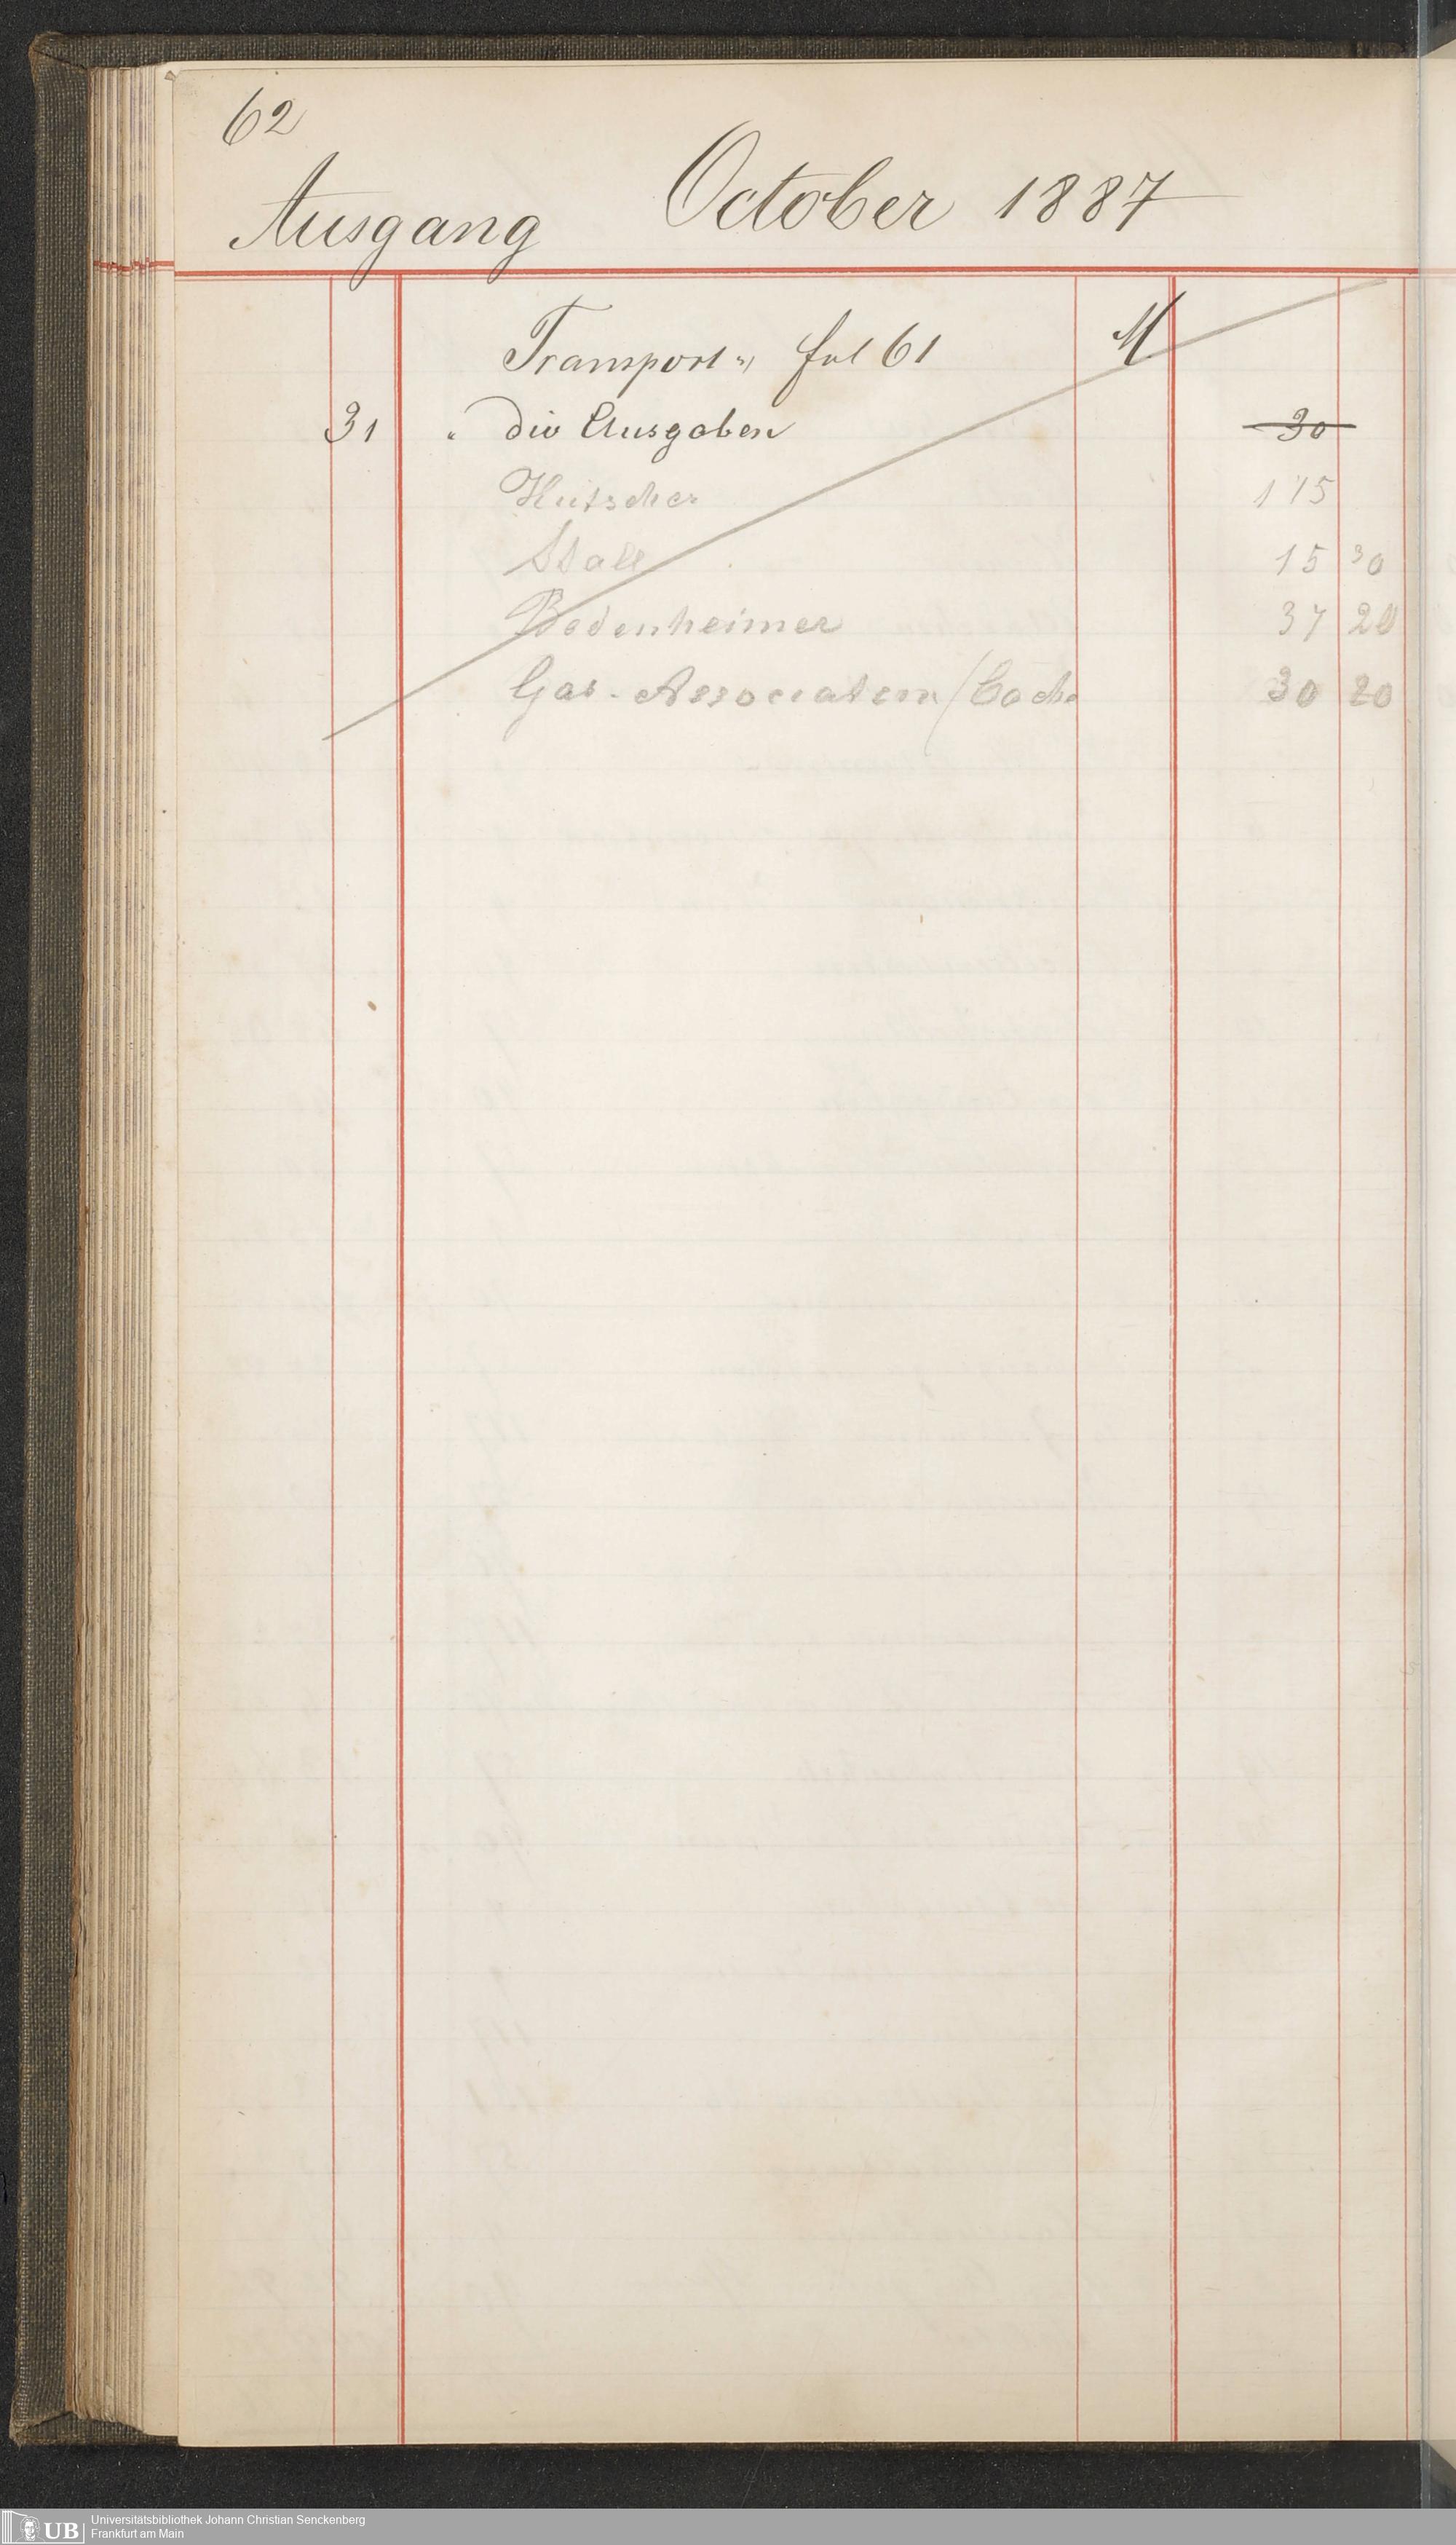 62
Ausgang October 1887
Transport v fol 61 M
31 " div Ausgaben 30
Kutscher 175
Stall 15 30
Bodenheimer 37 20
Gas-Association / Cocks 30 20
Universitätsbibliothek Johann Christian Senckenberg
Frankfurt am Main
UB